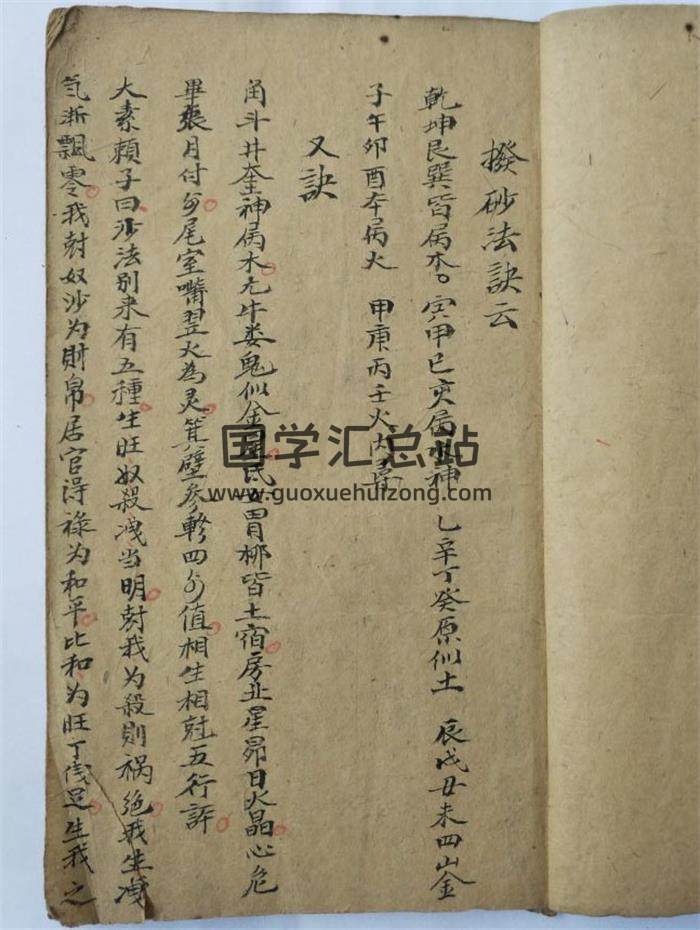 撥砂法訣云
乾坤艮巽皆属木。寅甲巳亥属水神 乙辛丁癸原似土 辰戌丑未四山金
子午卯酉本属火 甲庚丙壬火内尋
又訣
角斗井奎神属木亢牛娄鬼似金 氐女胃柳皆土宿房虚星昴日火晶心危
畢張月付多尾室嘴翌火為灵箕壁參軫四多值相生相尅五行評
大素賴子曰沙法别来有五種生旺奴殺洩当明尅我为殺則祸绝我生洩
気渐飄零我尅奴沙为財帛居官淂禄为和平比和为旺丁
生我之
国学汇总站
www.guoxuehuizong.com